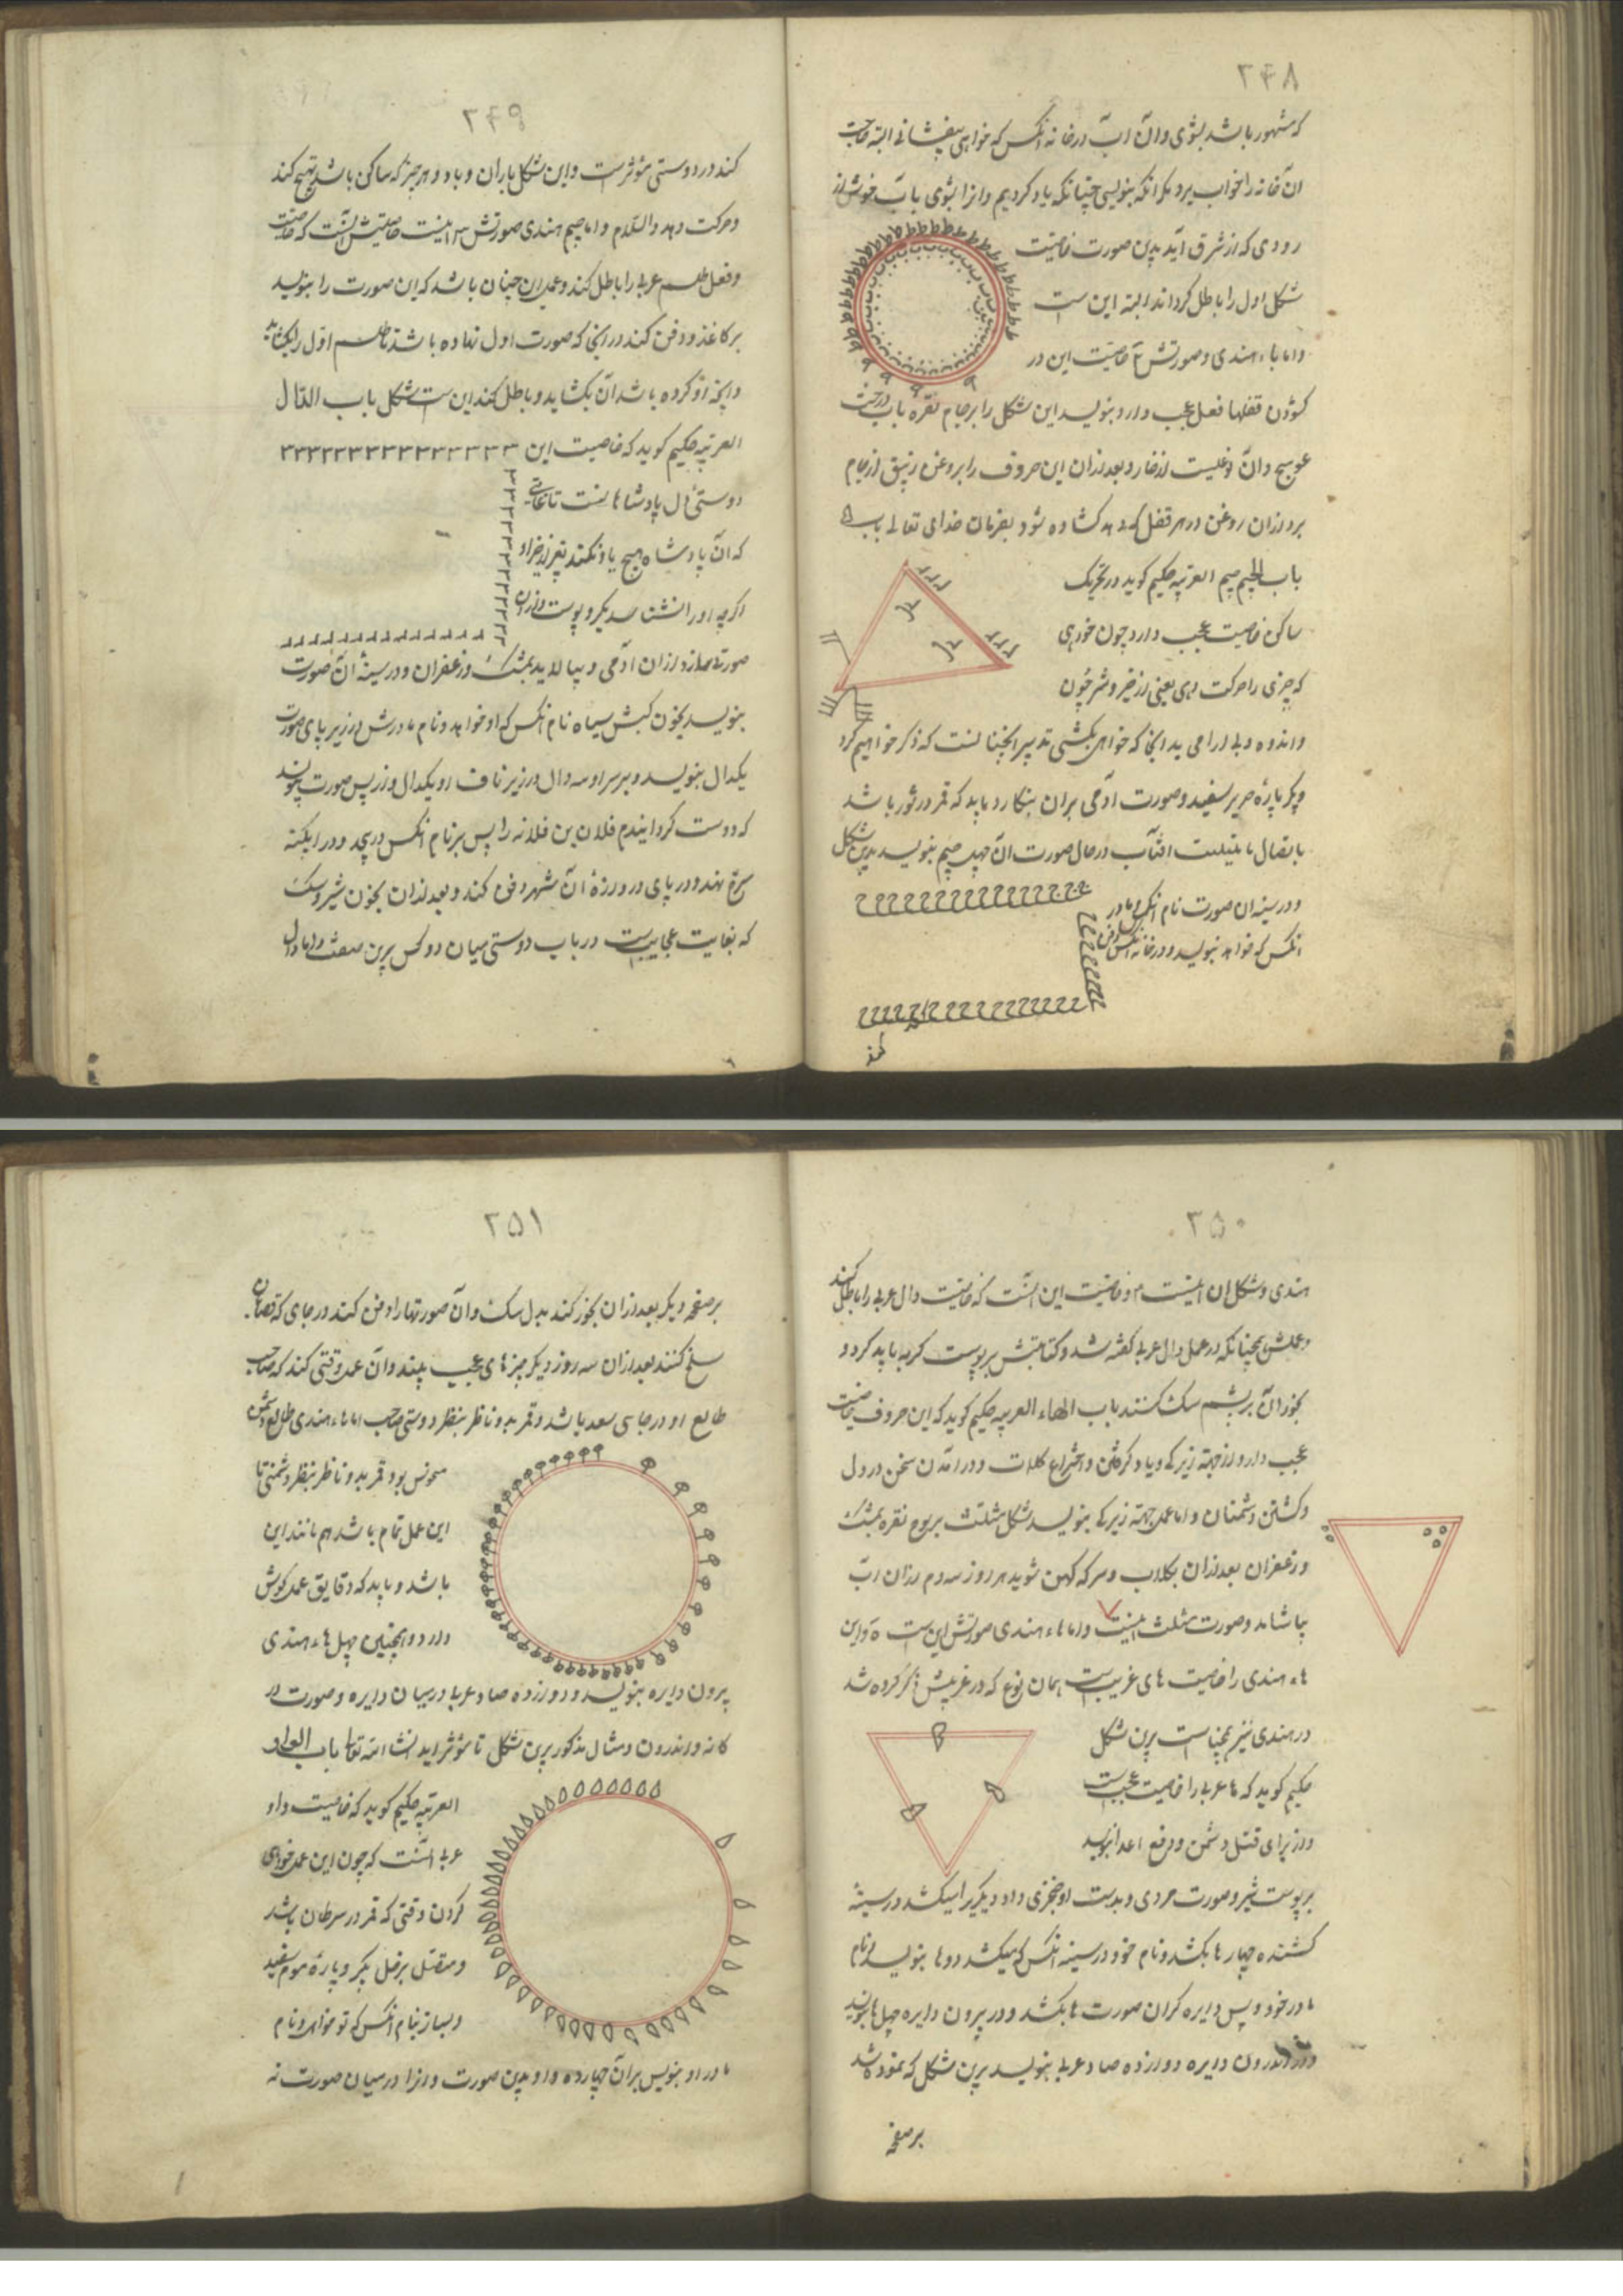 ۲۴۸
که مشهور باشد بشوی وان آب در خانه انکس که خواهی بیفشانی البته صاحب
ان خانه را خواب برد مکر انکه بنویسی چنانکه یاد کردیم وانرا بشوی باب خوش از
رودی که از شرق آید بدین صورت خاصیت
شکل اول را باطل کرداند البته این ست
واما باء هندی وصورتش خاصیت این در
کشودن قفلها فعل عجب دارد بنویسد این شکل را بر جام نقره باب درخت
عوسج وان نوعیست از خار وبعد از ان این حروف را بروغن زنبق از جام
بردارد ان روغن در هر قفل که دهد کشاده شود بفرمان خدای تعالی
باب الجیم جیم العربیه حکیم کوید در تحریک
ساکن خاصیت عجب دارد چون خواهی
که چیزی را حرکت دهی یعنی از خیر وشر چون
واندوه که خواهی بکشی تدبیر انچنانست که ذکر خواهیم کرد
پاره حریر سفید وصورت آدمی بران بنکارد باید که قمر در ثور باشد
باتصال تثلیث افتاب در حال صورت ان جیم بنویسد بدین شکل
ودر سینه ان صورت نام انکس ومادر
انکس که خواهد بنویسد ودر خانه انکس دفن
کند
۲۴۹
کند در دوستی مؤثرست واین شکل باران وباد وهر چیز که ساکن باشد تهیج کند
وحرکت دهد والسلام واما جیم هندی صورتش اینست خاصیتش انست که خاصیت
وفعل طلسم عربی را باطل کند وعمل ان چنان باشد که این صورت را بنویسد
بر کاغذ ودفن کند در انجا که صورت اول نهاده باشد تا طلسم اول را بکشاید
وانچه او کرده باشد ان بکشاید وباطل کند این ست شکل باب الدال
العربیه حکیم کوید که خاصیت این
دوستی دل پادشاهانست تا غایتی
که ان پادشاه هیچ
اکرچه اورا
صورتی سازد از ان آدمی وبیالاید بمشک وزعفران ودر سینه ان صورت
بنویسد بخون کبش سیاه نام انکس که او خواهد ونام مادرش در زیر پای صورت
یکدال بنویسد وبر سر او سه دال در زیر ناف او یکدال واز پس صورت بنویسد
که دوست کردانیدم فلان بن فلانه را پس بر نام انکس
سرخ نهد ودر پای دروازه ان شهر دفن کند وبعد از ان بخون شیر وسک
که بغایت عجایبست در باب دوستی میان دو کس برین صفت واما دال
۲۵۰
هندی وشکل ان اینست وخاصیت این انست که خاصیت دال عربی را باطل کند
وعملش همچنانکه در عمل دال عربی کفته شد وکتابتش بر پوست کربه باید کرد و
بخور ان بر پشم سک کنند باب الهاء العربیه حکیم کوید که این حروف خاصیت
عجب دارد از جهة زیرکی ویاد کرفتن واختراع کلمات ودر آمدن سخن در دل
وکشتن دشمنان واما عمل جهة زیرکی بنویسد شکل مثلث بر لوح نقره بمشک
وزعفران بعد از ان بکلاب وسرکه کهن شوید هر روز سه دم از ان آب
بیاشامد وصورت مثلث اینست واما هاء هندی صورتش این ست ۵ واین
هاء هندی را خاصیت های غریبست همان نوع که در عربیش ذکر کرده شد
در هندی نیز همچنانست برین شکل
حکیم کوید که ها عربی را خاصیت عجیبست
واز برای قتل دشمن ودفع اعدا بنویسد
بر پوست شیر وصورت مردی وبدست او خنجری داده ودیکری را میکشد در سینه
کشنده چهار ها بکشد ونام خود در سینه انکس که میکشد دو ها بنویسد ونام
مادر خود وپس دایره کران صورت ها بکشد ودر بیرون دایره چهل ها بنویسد
ودر اندرون دایره دوازده صاد عربی بنویسد برین شکل که نموده شد
بر صفحه
۲۵۱
بر صفحه دیکر بعد از ان بخور کند بدل سک وان صورتها را دفن کند در جای که قصابان
سلخ کنند بعد از ان سه روز دیکر چیزهای عجیب بیند وان عمل وقتی کند که صاحب
طالع او در جای سعد باشد وقمر بدو ناظر بنظر دوستی صاحب اما هاء هندی طالع دشمن
منحوس بود وقمر بدو ناظر بنظر دشمنی تا
این عمل تمام باشد هم مانند این
باشد وباید که دقایق عمل کوش
دارد وهمچنین چهل هاء هندی
بیرون دایره بنویسد ودوازده صاد عربی در میان دایره وصورت در
کانه در اندرون ومثال مذکور برین شکل تا مؤثر اید انشا الله تعا باب الواو
العربیه حکیم کوید که خاصیت واو
عربی انست که چون این عمل خواهی
کردن وقتی که قمر در سرطان باشد
ومتصل بزحل بکیر وپاره موم سفید
وبساز بنام انکس که تو خواهی ونام
مادر او بنویس بران چهارده واو بدین صورت وانرا در میان صورت نه